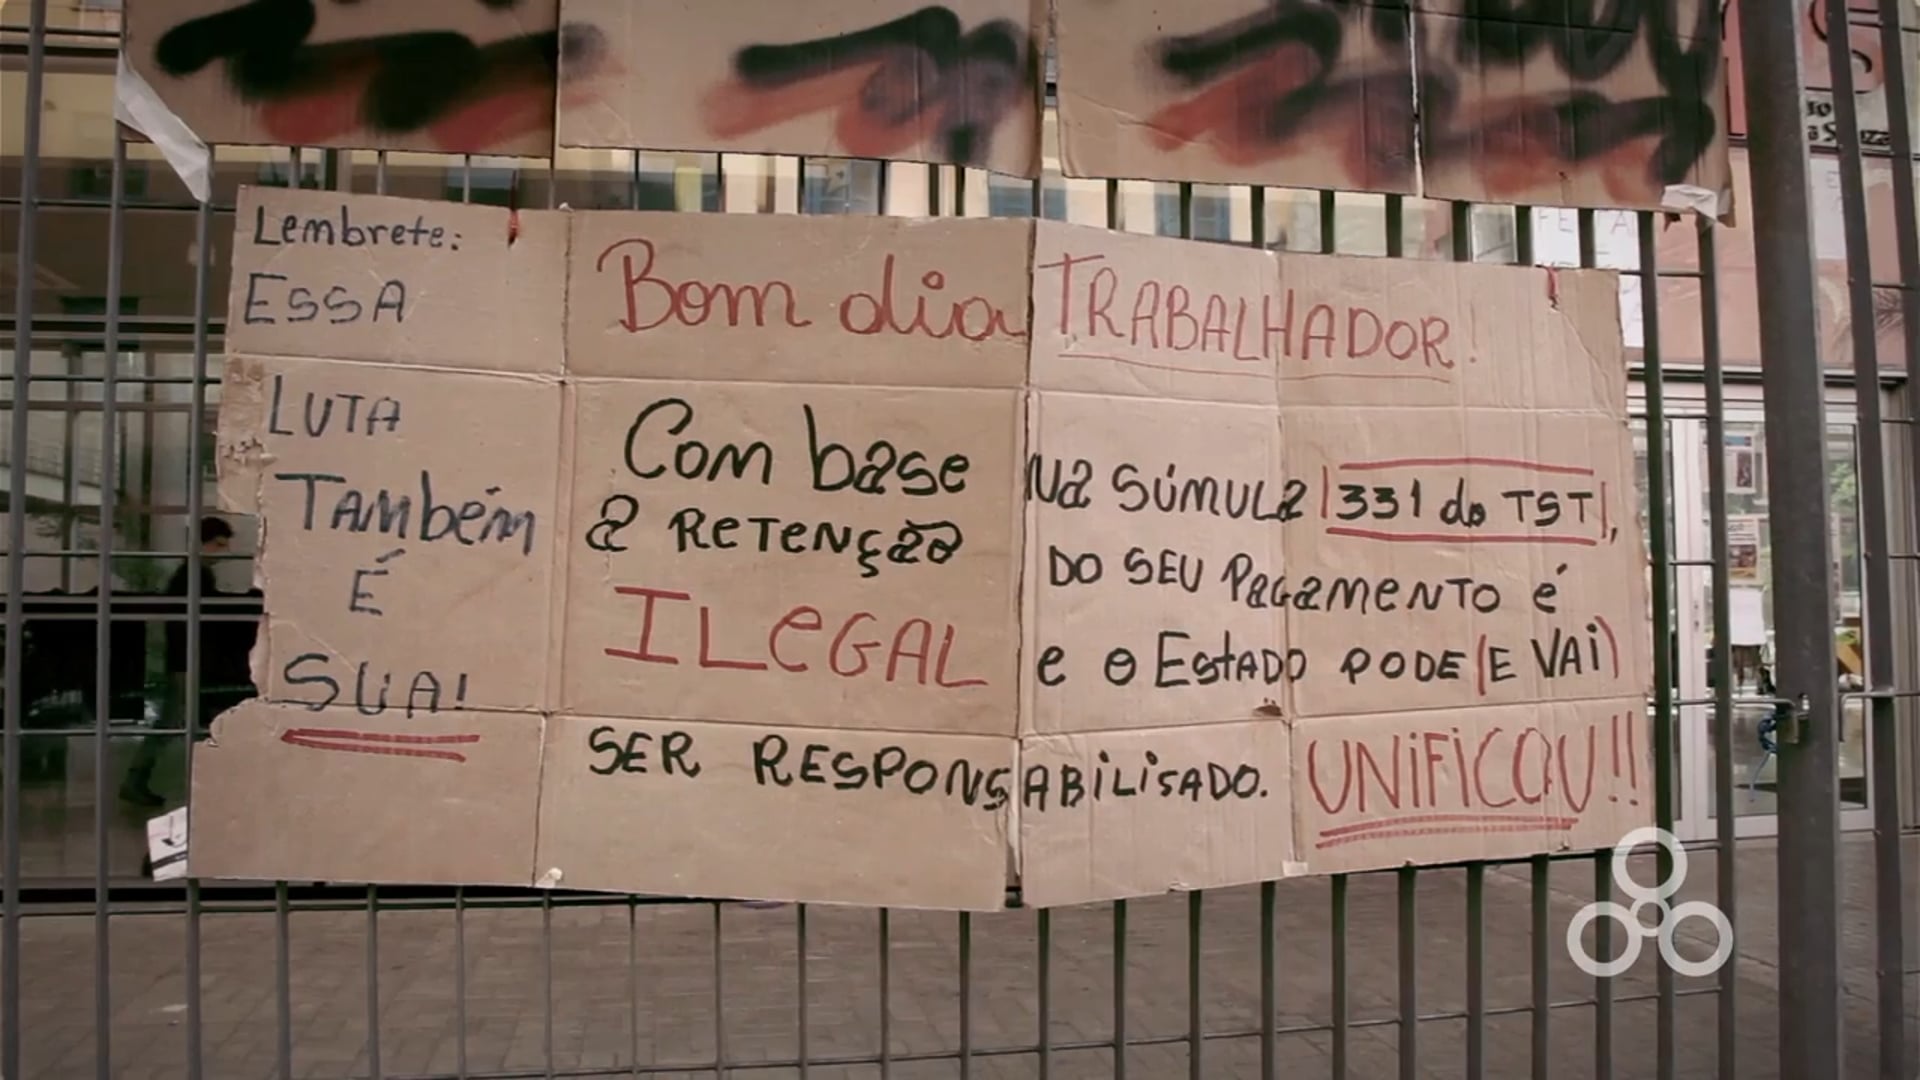 Lembrete:
ESSA
LUTA
Também
É
SUA!
Bom dia TRABALHADOR!
Com base na SÚMULA |331 do TST|,
a RETENÇÃO DO SEU PAGAMENTO é
ILEGAL e o ESTADO PODE (E VAI)
SER RESPONSABILISADO. UNIFICOU!!